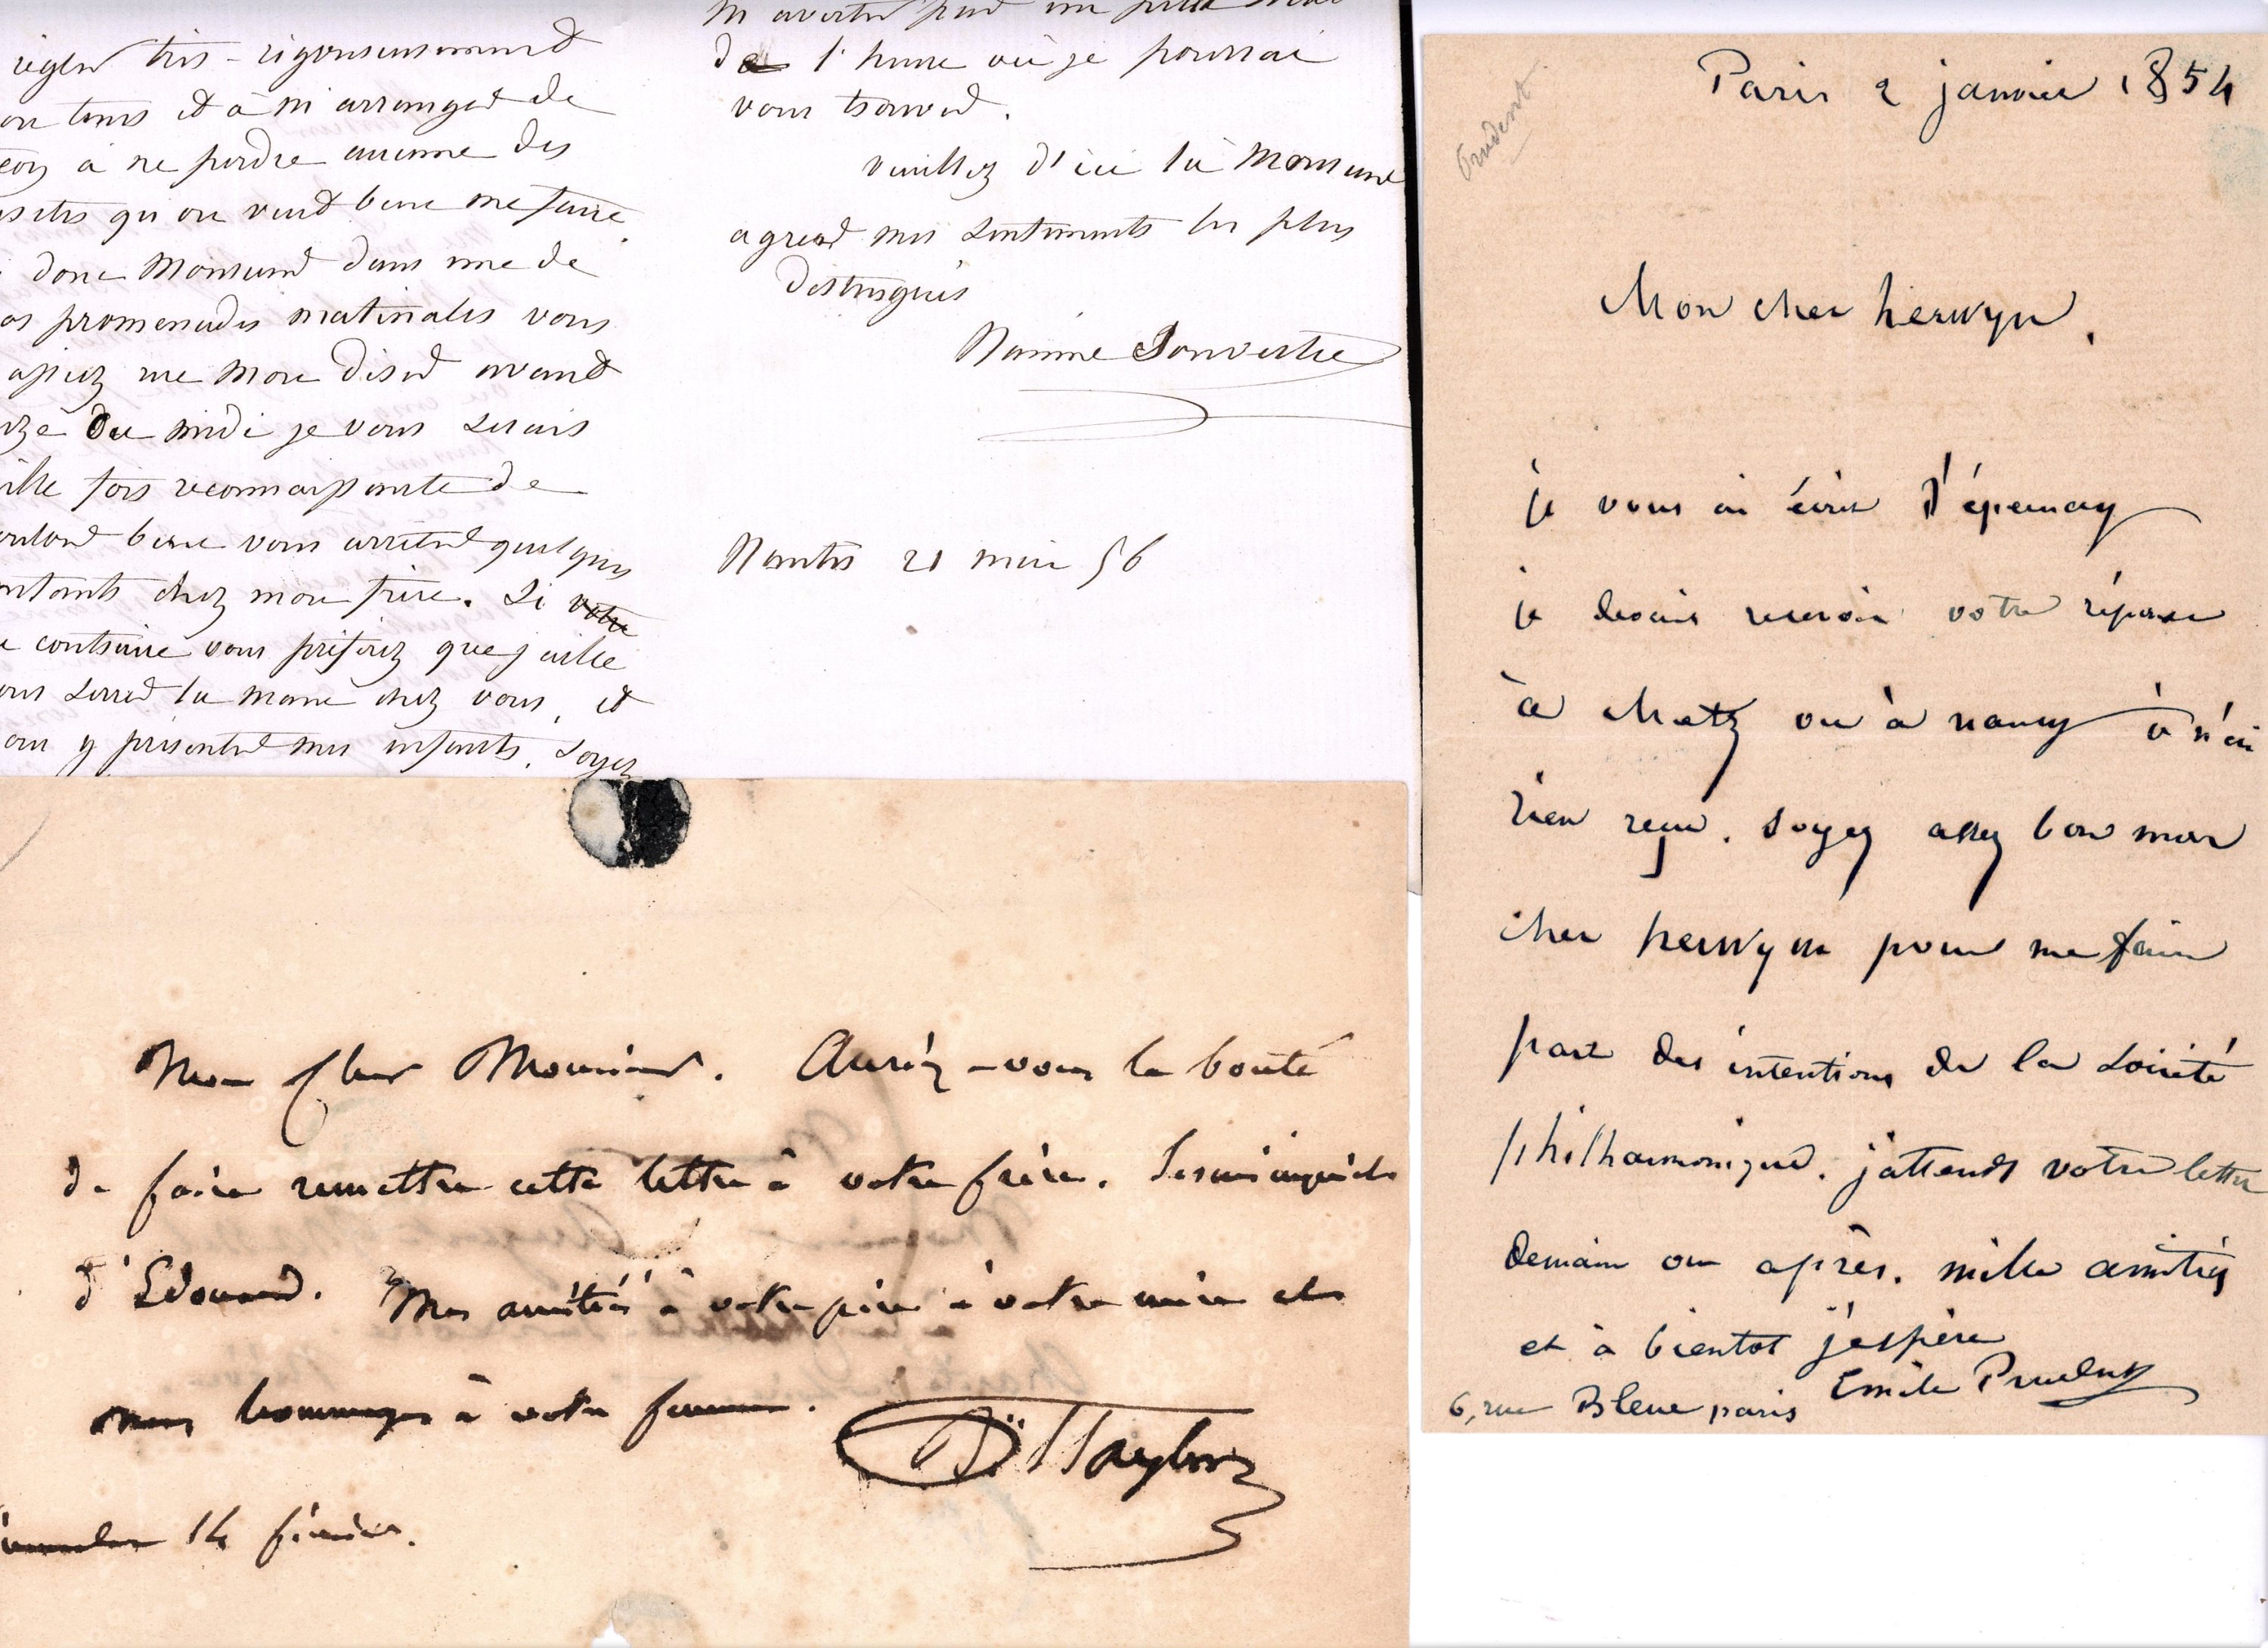 régler très-rigoureusement
on tems et à m'arranger de
çon à ne perdre aucune des
isites qu'on veut bien me faire.
donc Monsieur dans une de
os promenades matinales vous
assiez me More dised avant
ze du midi je vous serais
ille fois reconnaissante de
ouloir bien vous arrêter quelques
nstants chez mon frère. Si votre
e contraire vous préférez que j'aille
ous serrer la main chez vous, et
our y présenter mes enfants, soyez
m'avertir par un petit mot
de l'heure où je pourrai
vous trouver.
veuillez d'ici là Monsieur
agréer mes sentiments les plus
distingués
Nanine Souvestre
Nantes 21 mai 56
Mon cher Monsieur. Auriez-vous la bonté
de faire remettre cette lettre à votre frère. Je suis inquiet
d'Edouard. Mes amitiés à votre père à votre mère et
mes hommages à votre femme.
Bn. Taylor
14 février.
Prudent
Paris 2 janvier 1854
Mon cher herwyn,
je vous ai écrit d'épernay
je devais recevoir votre réponse
à Metz ou à nancy & n'ai
rien reçu. soyez assez bon mon
cher herwyn pour me faire
part des intentions de la société
philharmonique. j'attends votre lettre
demain ou après. mille amitiés
et à bientot j'espère
Emile Prudent
6, rue Bleue paris